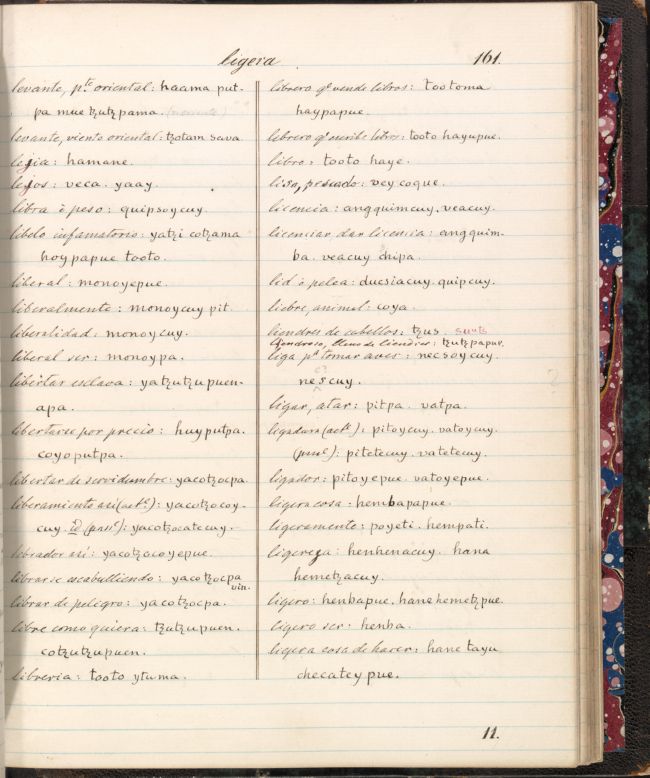 ligera 161.
levante, pte oriental: haama put-
pa mue tzutzpama.
levante, viento oriental: tzotam sava
lejia: hamane.
lejos: veca. yaay.
libra ò peso: quipsoycuy.
libelo infamatorio: yatzi cotzama
hoypapue tooto.
liberal: monoyepue.
liberalmente: monoycuy pit.
liberalidad: monoycuy.
liberal ser: monoypa.
libertar esclava: yatzutzupuen-
apa.
libertarse por precio: huyputpa.
coyoputpa.
libertar de servidumbre: yacotzocpa.
liberamiento asi (acte.): yacotzocoy-
cuy. id (passe): yacotzocatecuy.
librador asi: yacotzocoyepue.
librarse escabulliendo: yacotzocpa
vin.
librar de peligro: yacotzocpa.
libre como quiera: tzutzupuen.
cotzutzupuen.
libreria: tooto ytuma.
librero qe vende libros: tootoma
haypapue.
librero qe escribe libros: tooto hayupue.
libro: tooto haye.
lisa, pescado: veycoque.
licencia: angquimcuy. veacuy.
licenciar dar licencia: angquim-
ba. veacuy chipa.
lid ò pelea: ducsiacuy. quipcuy.
liebre, animal: coya.
liendres de cabellos: tzus.
liendroso, lleno de liendres: tzutzpapue.
liga pa tomar aves: necsoycuy.
nescuy.
ligar, atar: pitpa. vatpa.
ligadura (acte.): pitoycuy. vatoycuy.
(passe): pitetecuy. vatetecuy.
ligador: pitoyepue. vatoyepue.
ligera cosa: hembapapue.
ligeramente: poyeti. hempati.
ligereza: henhenacuy. hana
hemetzacuy.
ligero: henbapue. hanehemetzpue.
ligero ser: henba.
ligera cosa de hacer: hane tayu
checatey pue.
11.